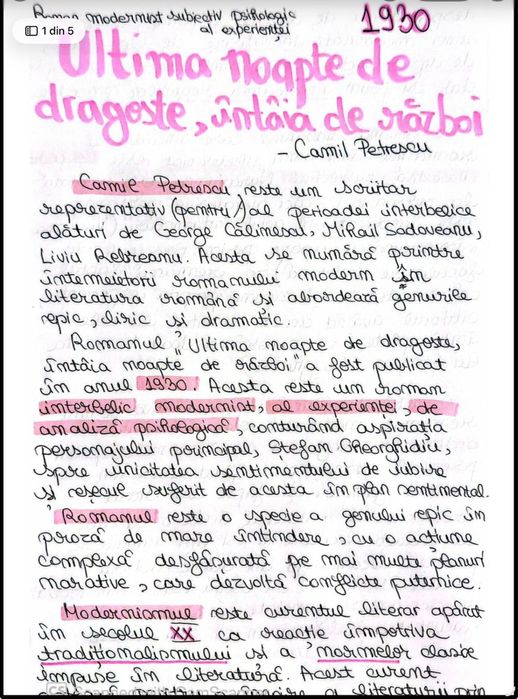 Roman modernist subiectiv psihologic
al experienței
1930
1 din 5
Ultima noapte de
dragoste, întâia de război
- Camil Petrescu
Camil Petrescu, este un scriitar
reprezentativ (pentru/) al perioadei interbelice
alături de George Călinescu, Mihail Sadoveanu,
Liviu Rebreanu. Acesta se numără printre
întemeietorii romanului modern în
literatura română și abordează genurile
epic, liric și dramatic.
Romanul „Ultima noapte de dragoste,
întâia noapte de război" a fost publicat
în anul 1930. Acesta este un roman
interbelic modernist, al experienței, de
analiză psihologică, conturând aspirația
personajului principal, Ștefan Gheorghidiu,
spre unicitatea sentimentului de iubire
și eșecul suferit de acesta în plan sentimental.
Romanul este o specie a genului epic în
proză de mare întindere, cu o acțiune
complexă desfășurată pe mai multe planuri
narative, care dezvoltă conflicte puternice.
Modernismul este curentul literar apărut
în secolul XX ca reacție împotriva
tradiționalismului și a normelor clasice
impuse în literatură. Acest curent